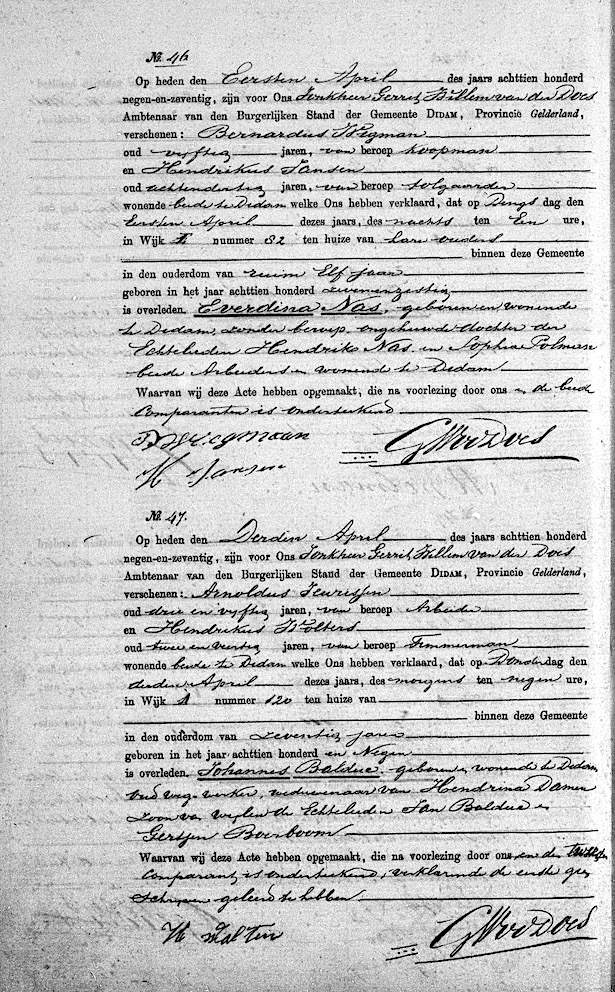 No. 46
Op heden den Eersten April des jaars achttien honderd
negen-en-zeventig, zijn voor Ons Jonkheer Gerrit Willem van der Does
Ambtenaar van den Burgerlijken Stand der Gemeente DIDAM, Provincie Gelderland,
verschenen: Bernardus Wegman
oud vyftig jaren, van beroep Koopman
en Hendrikus Jansen
oud achtendertig jaren, van beroep tolgaarder
wonende beide te Dedam welke Ons hebben verklaard, dat op Dings dag den
Eersten April dezes jaars, des nachts ten Een ure,
in Wijk nummer 82 ten huize van hare ouders
binnen deze Gemeente
in den ouderdom van ruim Elf jaar
geboren in het jaar achttien honderd zevenenzestig
is overleden. Everdina Nas, geboren en wonende
te Dedam, zonder beroep, ongehuwde dochter der
Echtelieden Hendrik Nas en Sophia Polman
beide Arbeiders en wonend te Dedam
Waarvan wij deze Acte hebben opgemaakt, die na voorlezing door ons en de beide
Comparanten is onderteekend
B Wegman
GWvdDoes
H Jansen
No. 47.
Op heden den Derden April des jaars achttien honderd
negen-en-zeventig, zijn voor Ons Jonkheer Gerrit Willem van der Does
Ambtenaar van den Burgerlijken Stand der Gemeente DIDAM, Provincie Gelderland,
verschenen: Arnoldus Jeurissen
oud drie en vyftig jaren, van beroep Arbeider
en Hendrikus Wolters
oud twee en veertig jaren, van beroep Timmerman
wonende beide te Dedam welke Ons hebben verklaard, dat op Donderdag den
derden April dezes jaars, des morgens ten negen ure,
in Wijk 1 nummer 120 ten huize van
binnen deze Gemeente
in den ouderdom van zeventig jaren
geboren in het jaar achttien honderd en Negen
is overleden. Johannes Balduc geboren, wonende te Dedam
oud weg-werker, weduwenaar van Hendrina Damen
zoon van wylen de Echtelieden Jan Balduc en
Gertjen Boerboom
Waarvan wij deze Acte hebben opgemaakt, die na voorlezing door ons en den
Comparant, is onderteekend, verklarende de eerste geen
Schryven geleerd te hebben
GWvdDoes